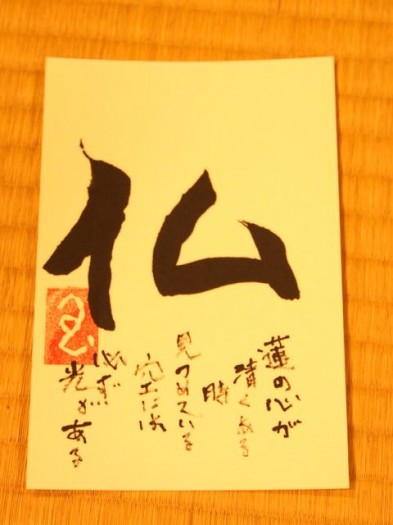 仏
蓮の心が
清くある
時
見つめている
空には
必ず
光がある